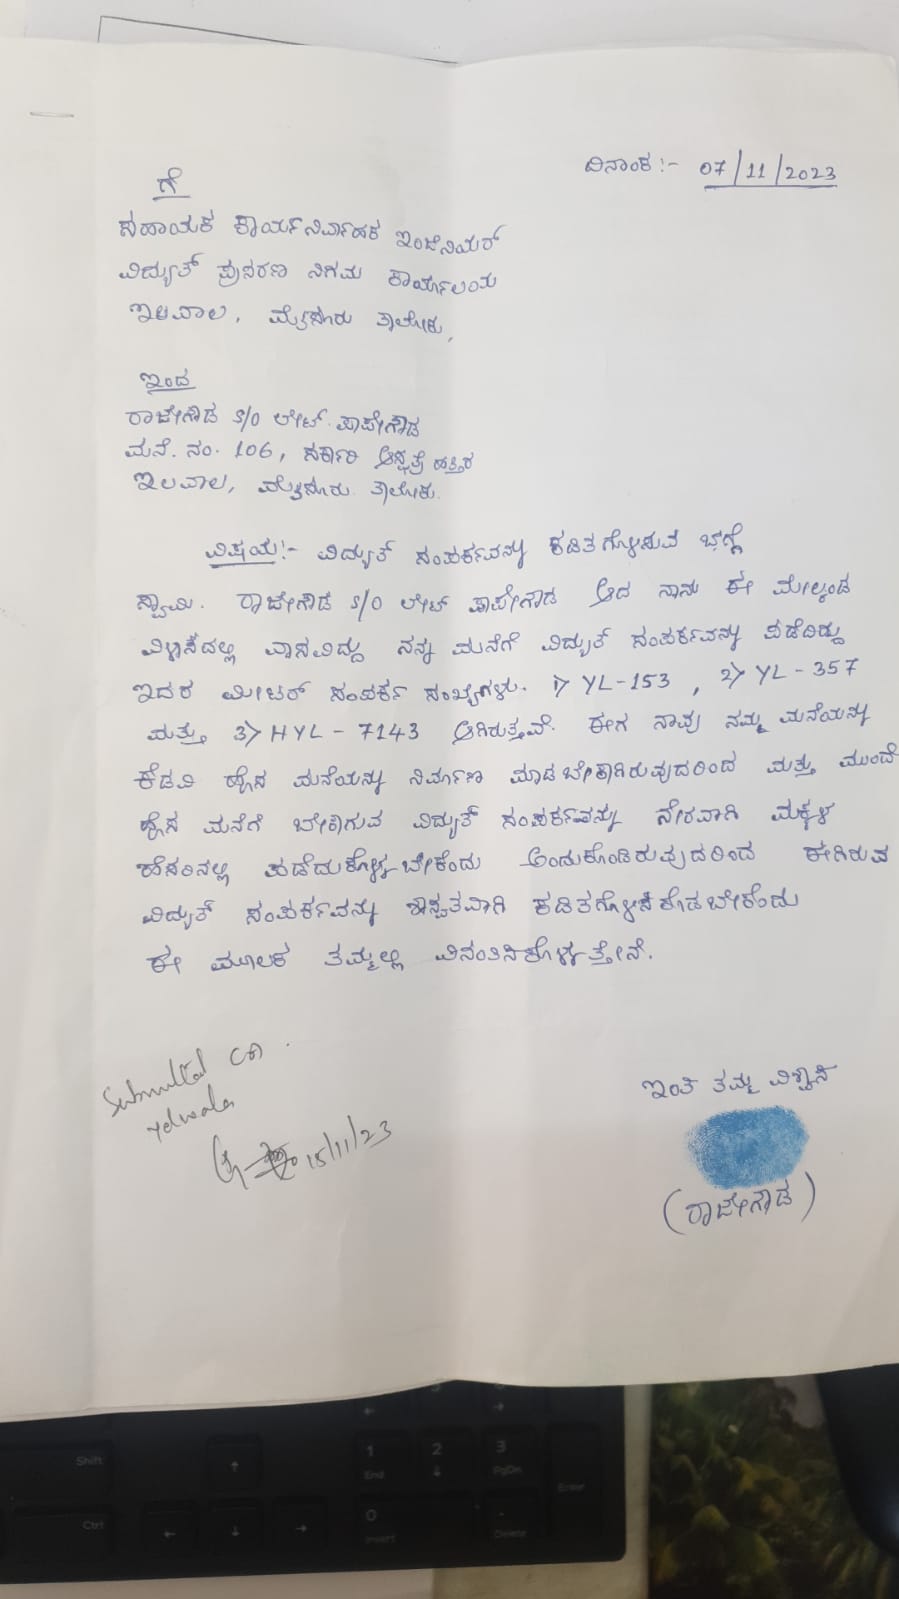 ದಿನಾಂಕ :- 07/11/2023
ಗೆ
ಸಹಾಯಕ ಕಾರ್ಯನಿರ್ವಾಹಕ ಇಂಜಿನಿಯರ್
ವಿದ್ಯುತ್ ಪ್ರಸರಣ ನಿಗಮ ಕಾರ್ಯಾಲಯ
ಇಲವಾಲ, ಮೈಸೂರು ತಾಲೋಕು,
ಇಂದ
ರಾಜೇಗೌಡ S/O ಲೇಟ್. ಪಾಪೇಗೌಡ
ಮನೆ. ನಂ. 106, ಸರ್ಕಾರಿ ಆಸ್ಪತ್ರೆ ಹತ್ತಿರ
ಇಲವಾಲ, ಮೈಸೂರು. ತಾಲೋಕು.
ವಿಷಯ:- ವಿದ್ಯುತ್ ಸಂಪರ್ಕವನ್ನು ಕಡಿತಗೊಳಿಸುವ ಬಗ್ಗೆ
ಸ್ವಾಮಿ. ರಾಜೇಗೌಡ S/O ಲೇಟ್ ಪಾಪೇಗೌಡ ಆದ ನಾನು ಈ ಮೇಲ್ಕಂಡ
ವಿಳಾಸದಲ್ಲಿ ವಾಸವಿದ್ದು ನನ್ನ ಮನೆಗೆ ವಿದ್ಯುತ್ ಸಂಪರ್ಕವನ್ನು ಪಡೆದಿದ್ದು
ಇದರ ಮೀಟರ್ ಸಂಪರ್ಕ ಸಂಖ್ಯೆಗಳು. 1> YL-153 , 2> YL - 357
ಮತ್ತು 3> HYL - 7143 ಆಗಿರುತ್ತವೆ. ಈಗ ನಾವು ನಮ್ಮ ಮನೆಯನ್ನು
ಕೆಡವಿ ಹೊಸ ಮನೆಯನ್ನು ನಿರ್ಮಾಣ ಮಾಡಬೇಕಾಗಿರುವುದರಿಂದ ಮತ್ತು ಮುಂದೆ
ಹೊಸ ಮನೆಗೆ ಬೇಕಾಗುವ ವಿದ್ಯುತ್ ಸಂಪರ್ಕವನ್ನು ನೇರವಾಗಿ ಮಕ್ಕಳ
ಹೆಸರಿನಲ್ಲಿ ಪಡೆದುಕೊಳ್ಳಬೇಕೆಂದು ಅಂದುಕೊಂಡಿರುವುದರಿಂದ ಈಗಿರುವ
ವಿದ್ಯುತ್ ಸಂಪರ್ಕವನ್ನು ಶಾಶ್ವತವಾಗಿ ಕಡಿತಗೊಳಿಸಿಕೊಡಬೇಕೆಂದು
ಈ ಮೂಲಕ ತಮ್ಮಲ್ಲಿ ವಿನಂತಿಸಿಕೊಳ್ಳುತ್ತೇನೆ.
Submitted on
Yelwala
15/11/23
ಇಂತಿ ತಮ್ಮ ವಿಶ್ವಾಸಿ
(ರಾಜೇಗೌಡ)
Shift
1 2 3
End PgDn
Enter
Ctrl
0
Insert Delete